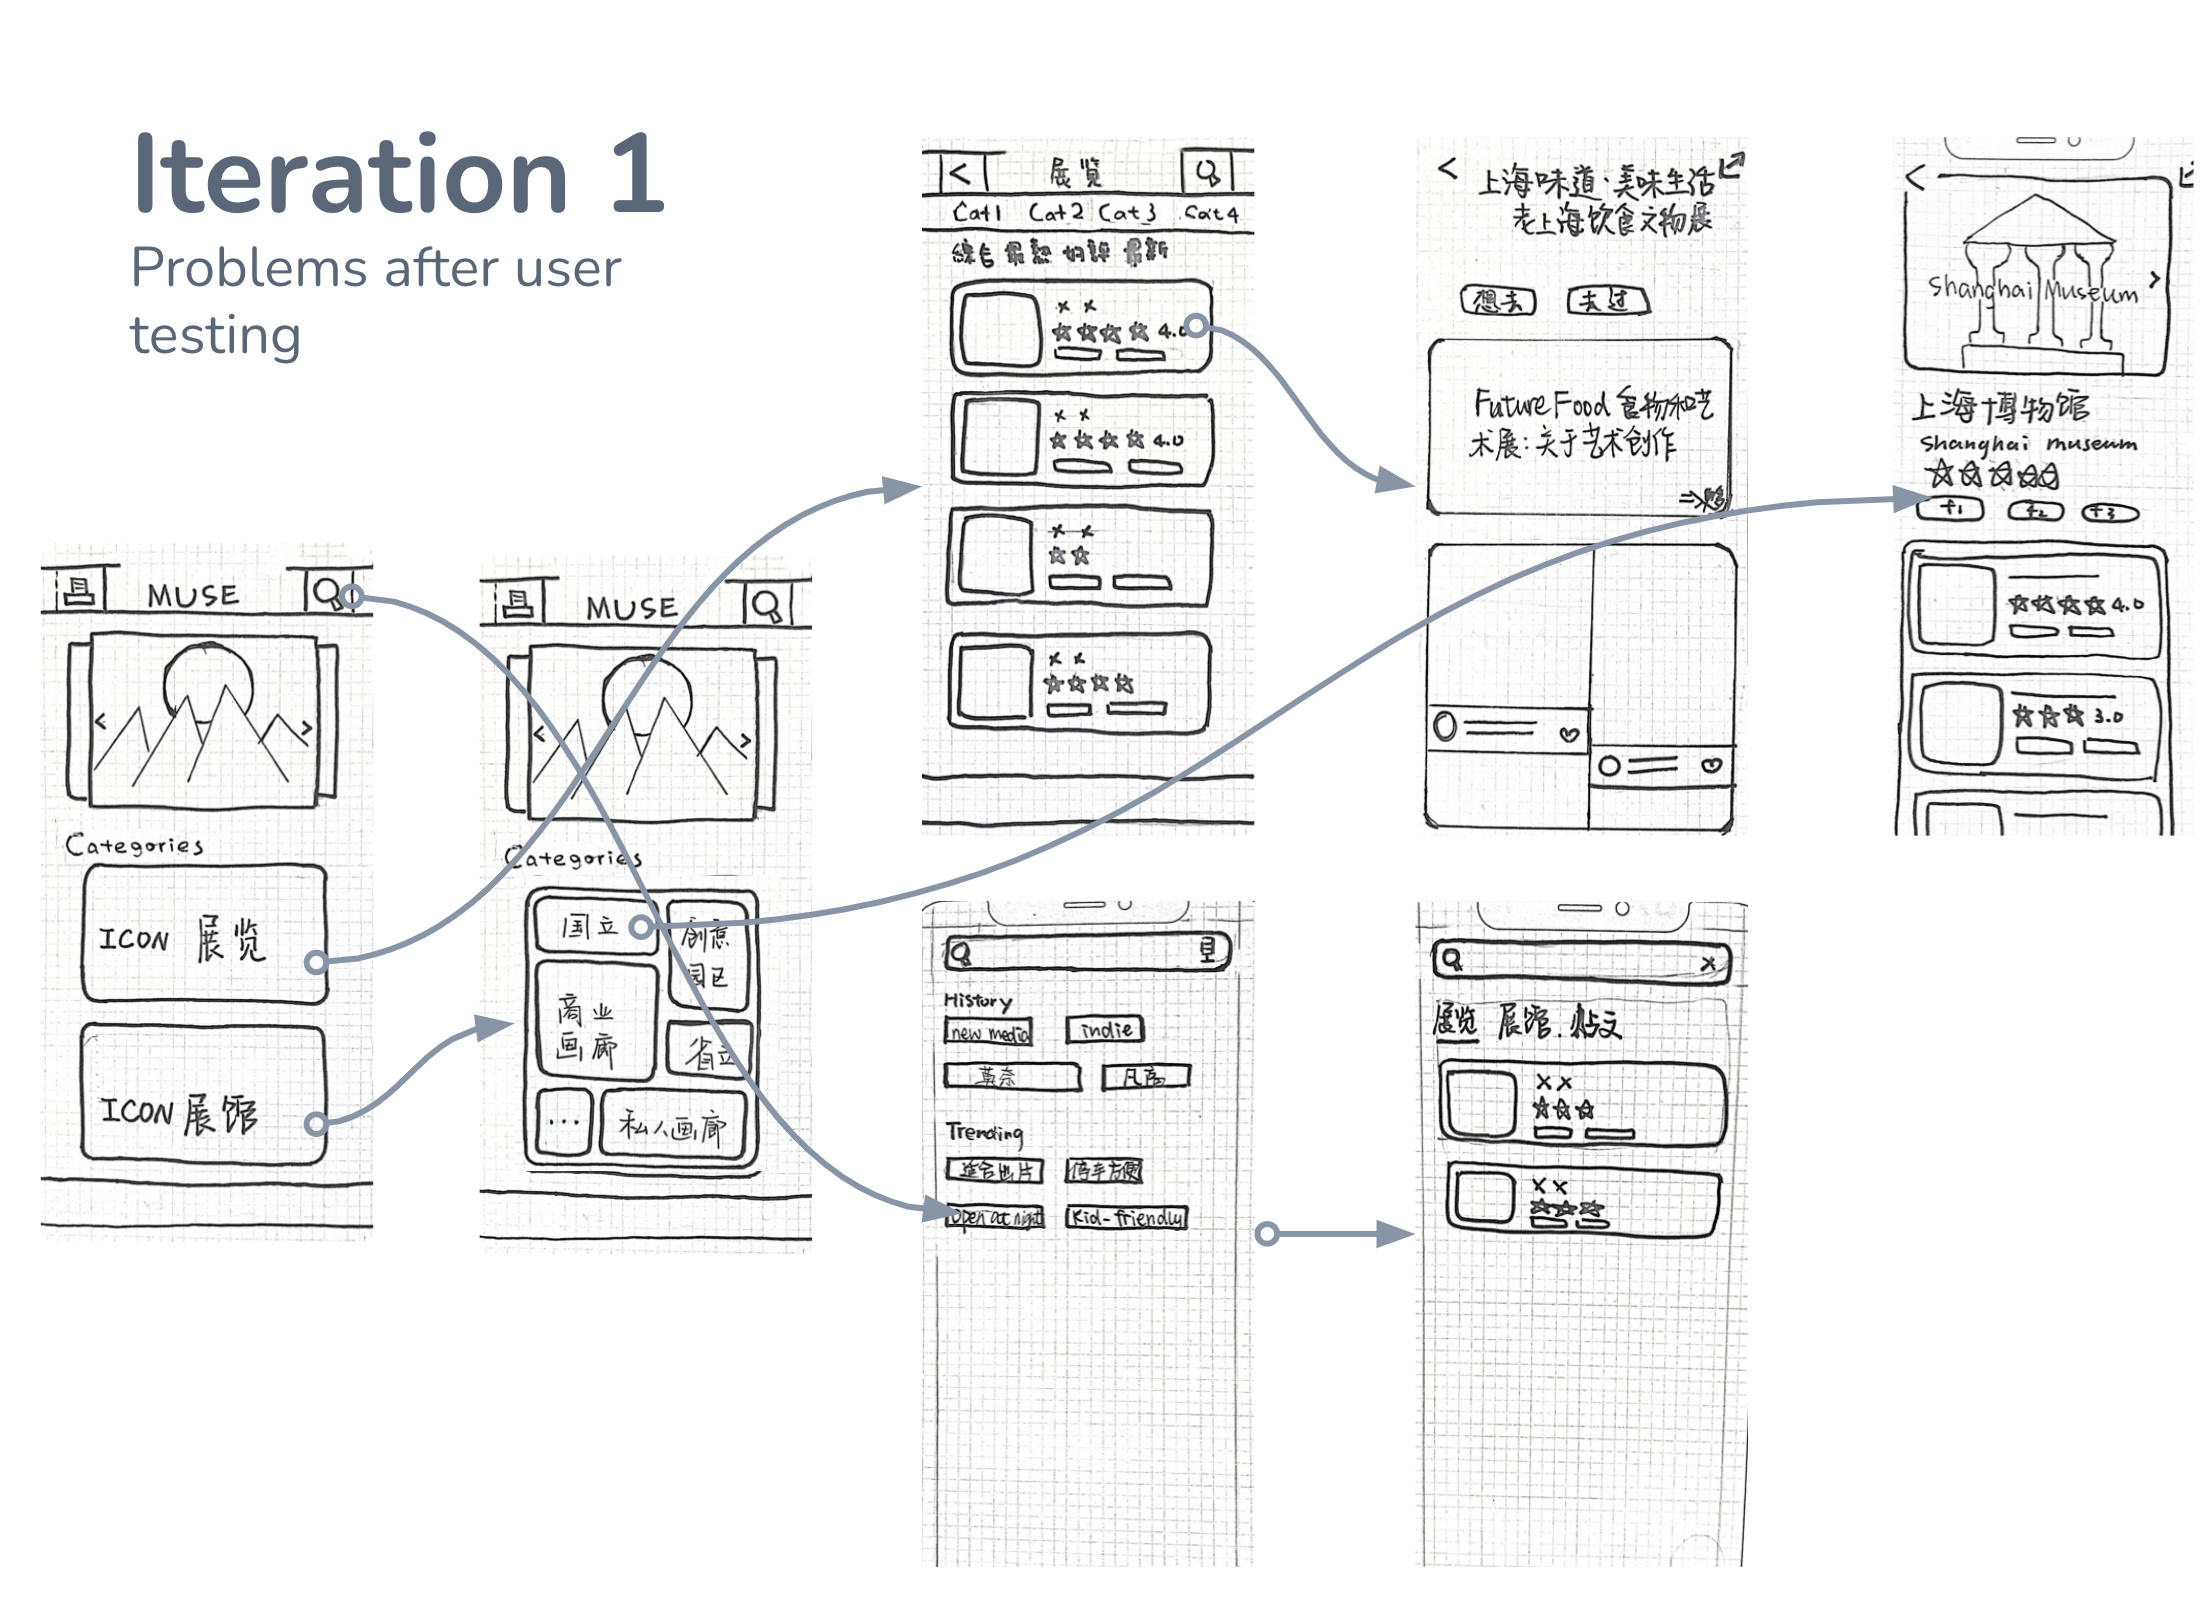 Iteration 1
Problems after user
testing
MUSE
Categories
ICON 展览
ICON 展馆
MUSE
Categories
国立
创意
园区
商业
画廊
省立
...
私人画廊
展览
Cat1 Cat2 Cat3 Cat4
綜合 最熱 好評 最新
x x
4.0
x x
4.0
x x
x x
上海味道·美味生活
老上海饮食文物展
想去
去过
Future Food 食物和艺
术展:关于艺术创作
Shanghai Museum
上海博物馆
Shanghai museum
t1
t2
t3
4.0
3.0
History
new media
indie
莫奈
凡高
Trending
适合出片
停车方便
Open at night
Kid-friendly
x
展览 展馆 帖文
x x
x x